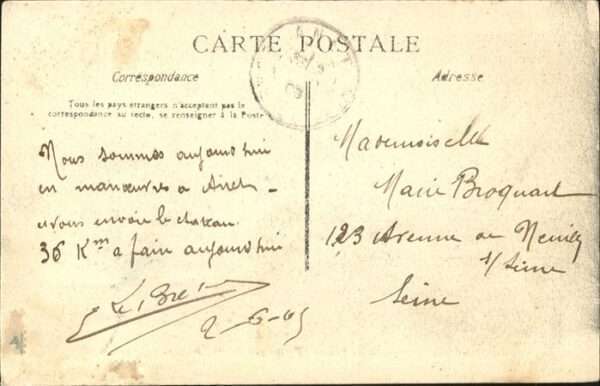 CARTE POSTALE
Correspondance
Adresse
Tous les pays étrangers n'acceptent pas le
correspondance au recto, se renseigner à la Poste
Nous sommes aujourd'hui
en manœuvres a Anet
vous envoie le chateau
36 Km a fain aujourd'hui
2-6-05
Mademoiselle
Marie Broquart
123 Avenue de Neuilly
s/Seine
Seine